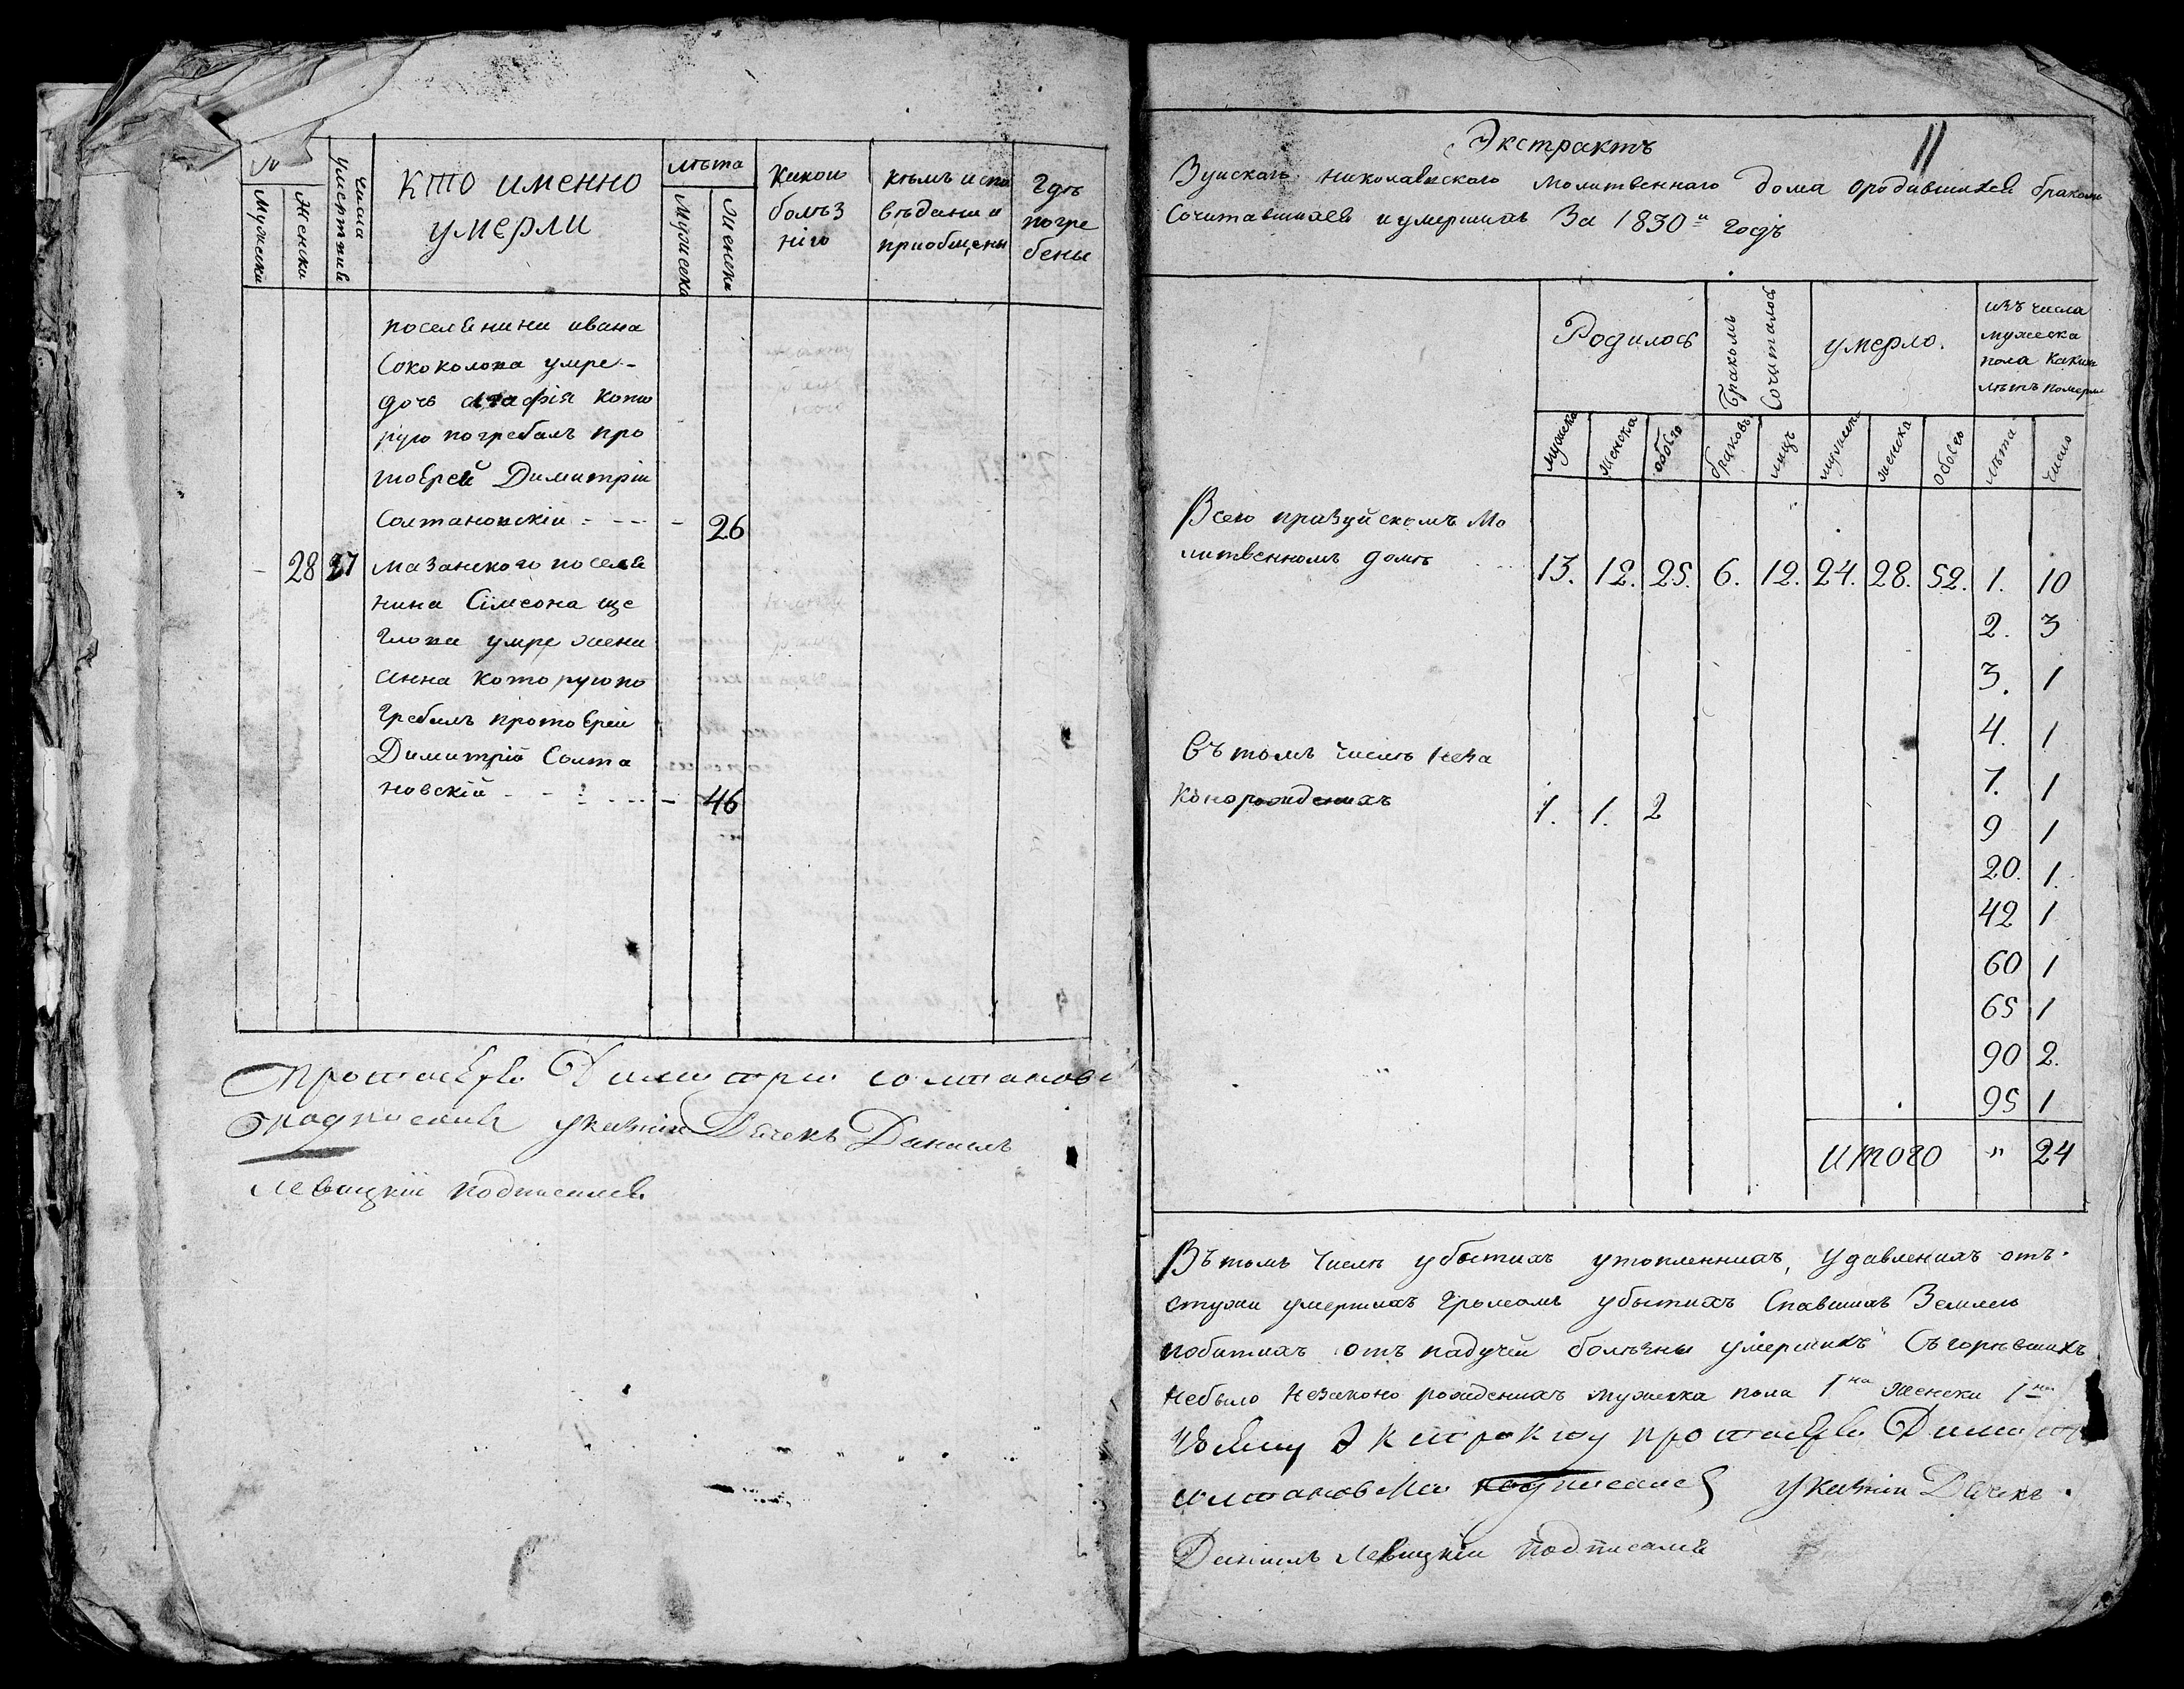 №
Мужеска
Женска
Числа умертвiя
кто именно
умерли
лѣта
Мужеска
Женска
Какою
болѣз
нiю
кѣмъ испо
вѣданы и
приобщены
Гдѣ
погре
бены
поселянина ивана
Соколова умре
дочь агафiя кото
рую погребалъ про
тоерей Димитрiй
Солтановскiй - 26
- 28 27 мазанского поселя
нина Сiмеона ще
глова умре жена
анна которую по
гребалъ протоерей
Димитрiй Солта
новскiй - 46
протоерей Димитрiй солтановс
подписался указнiй Дячекъ Данiилъ
левицкiй подписался
Экстрактъ
11
Зуйскаго николаевскаго молитвеннаго дома ородившихся бракомъ
Сочитавшихся и умершихъ За 1830й годъ
Родилось
Бракомъ Сочиталось
умерло.
изъ числа
мужеска
пола каких
лѣтъ померли
мужеска
женска
обоего
браковъ
лицъ
мужеска
женска
обоего
лѣта
число
Всего празуйскомъ мо
литвенномъ домѣ 13. 12. 25. 6. 12. 24. 28. 52. 1. 10
2. 3
3. 1
4. 1
7. 1
Въ томъ числѣ неза
конорожденихъ 1. 1. 2
9 1
20. 1.
42 1
60 1
65 1
90 2.
95 1
итого " 24
Въ томъ числѣ убытихъ утопленнихъ, удавленихъ отъ
стужи умершихъ громомъ убытихъ Спавшихъ Землею
побитихъ отъ падучей болѣзны умершихъ Съгорѣвшихъ
небыло незаконо рожденихъ мужеска пола 1на женска 1на
Къ сему Экстракту протоерей Димитр
солтановскiй подписался указнiй Дячекъ
Данiилъ левицкiй подписался